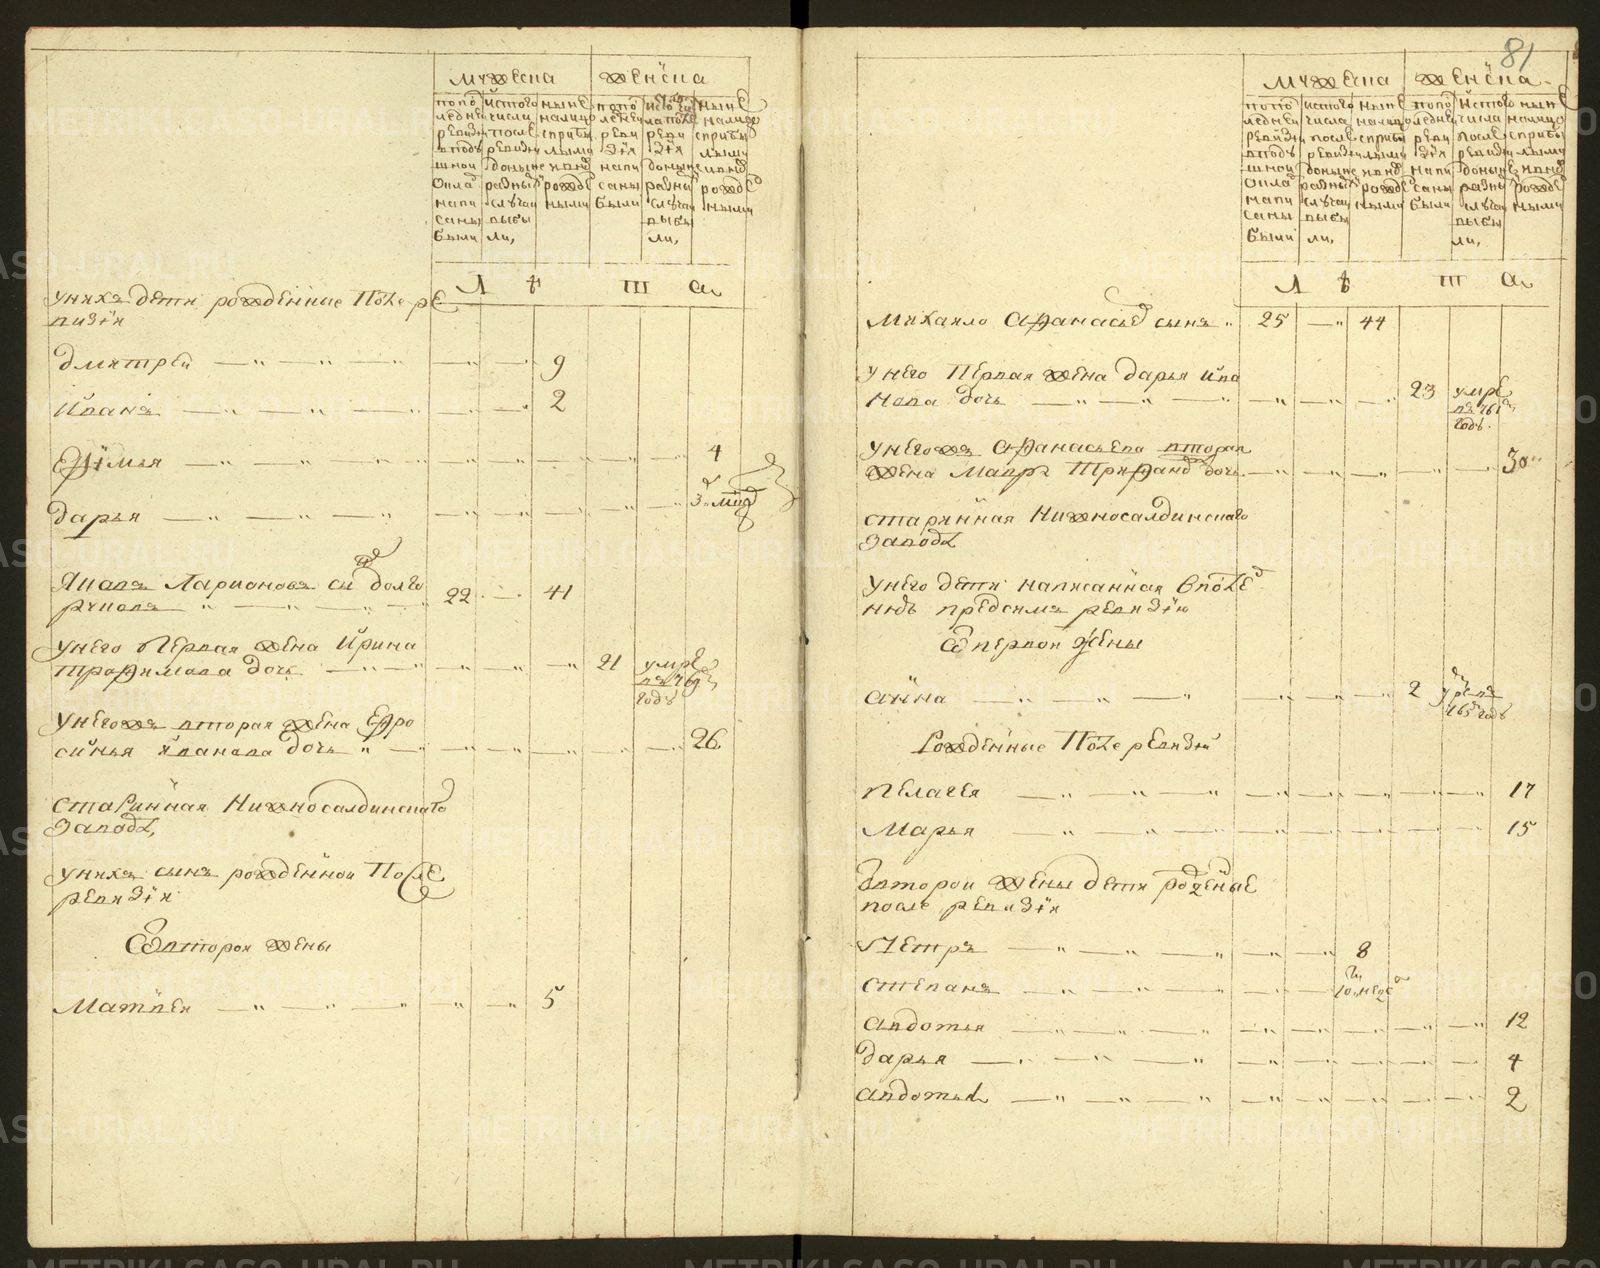 мужеска
женска
попо
ледней
ревизи
в подъ
шной
окла
напи
саны
были
истого
числа
после
ревизи
доныне
разны
случаи
выбы
ли,
ныне
налицо
с прибы
лыми
и внов
рожде
ными
попо
ледней
реви
зiи
напи
саны
были
реви
зiи
доныне
разны
случаи
выбы
ли,
ныне
налицо
с прибы
лыми
и внов
рожде
ными
Л ѣ т а
у них детя рожденные после ре
визiи
Дмитрей 9
Иванъ 2
Ефимья 4
Дарья 3 мцд
Яковъ Ларионовъ сы Долго
руковъ 22 41
у него первая жена Ирина
Трофимова дочь 21 умре
въ 769
годъ
у него жъ вторая жена Евро
синья Иванова дочь 26
старинная Нижносалдинскаго
завода,
у нихъ сынъ рожденной после
ревизiи
От второй жены
Матвей 5
81
мужеска
женска
попо
ледней
ревизи
в подъ
шной
окла
напи
саны
были
истого
числа
после
ревизи
доныне
разны
случаи
выбы
ли,
ныне
налицо
с прибы
лыми
и внов
рожде
ными
попо
ледней
реви
зiи
напи
саны
были
истого
числа
после
ревизи
доныне
разны
случаи
выбы
ли,
ныне
налицо
с прибы
лыми
и внов
рожде
ными
Л ѣ т а
Михаило Афанасьев сынъ 25 44
у него первая жена Дарья Ива
нова дочь 23 умре
въ 761
годъ.
у него жъ Афанасьева вторая
жена Мавра Трифанов дочь 30
старинная Нижносалдинскаго
завода
у него дети написанная в после
нюю предсимъ ревизiю
От первой жены
Анна 2 умре въ
765 годъ
Рожденные после ревизiи
Пелагея 17
Марья 15
От второй жены дети рожденые
после ревизiи
Петръ 8
Степанъ 10 меся
Авдотья 12
Дарья 4
Авдотья 2